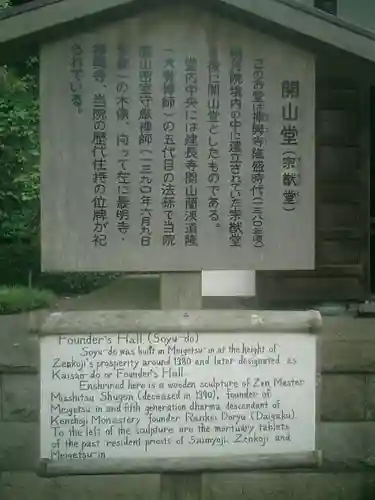 開山堂（宗猷堂）
このお堂は禅興寺隆盛時代（一三八〇年頃）
明月院境内の中に建立されていた宗猷堂
を後に開山堂としたものである。
堂内中央には建長寺開山蘭渓道隆
（大覚禅師）の五代目の法孫で当院
開山密室守厳禅師（一三九〇年六月九日
）の木像、向って左に最明寺・
禅興寺、当院の歴代住持の位牌が祀
されている。
Founder's Hall (Soyu-do)
Soyu-do was built in Meigetsu-in at the height of
Zenkoji's prosperity around 1380 and later designated as
Kaisan-do or Founder's Hall.
Enshrined here is a wooden sculpture of Zen Master
Mashitsu Shugon (deceased in 1390), founder of
Meigetsu-in and fifth generation dharma descendant of
Kenchoji Monastery founder Rankei Doryu (Daigaku).
To the left of the sculpture are the mortuary tablets
of the past resident priests of Saimyoji, Zenkoji and
Meigetsu-in